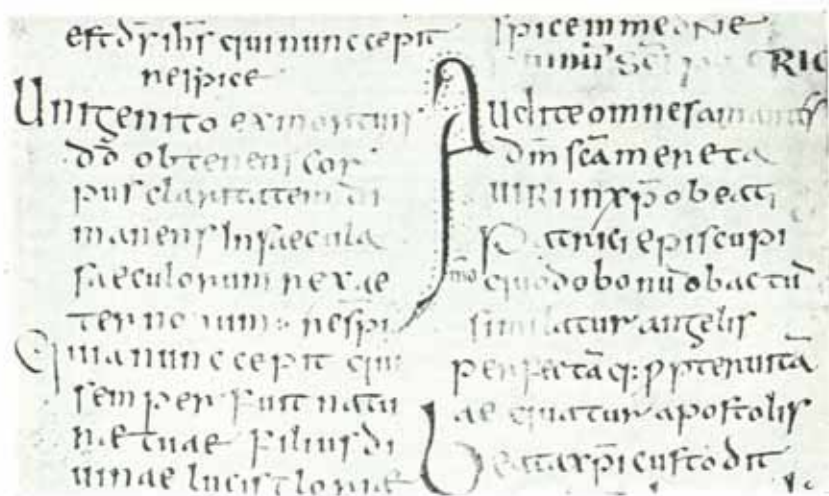 est dn̄s ihs̄ qui nunc cepit
respice
Unigenito ex mortuis
dō obtenens cor
pus claritatem di
manens In saecula
saeculorum rex ae
ternorum: resp̄i
Quia nunc cepit qui
semper fuit natu
rae tuae filius di
uinae lucis gloriae
spice in me
RIC
Audite omnes amantes
dm̄ scā mereta
uiRi in xp̄o beati
Patrici episcupi
mō quodo bonū ob actū
similatur angelis
perfectāq; propter uitā
aequatur apostolis
Beata xp̄i custodit